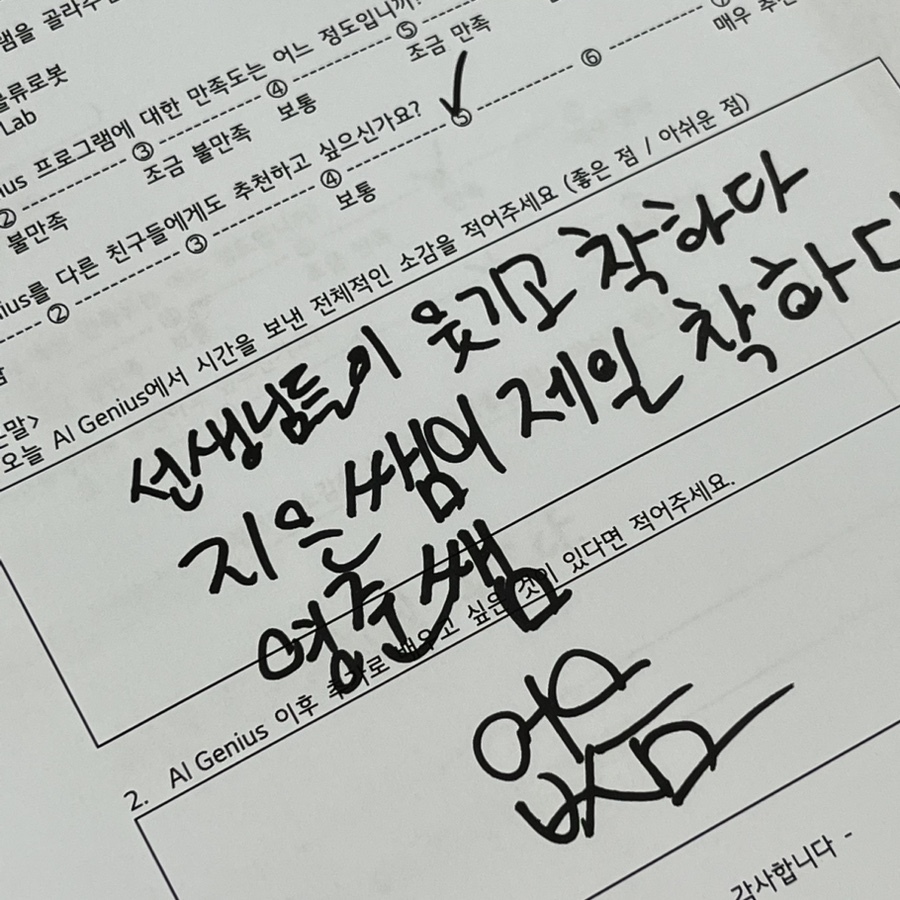 샘을 골라주
물류로봇
Lab
ius 프로그램에 대한 만족도는 어느 정도입니까?
② --------- ③ --------- ④ --------- ⑤
불만족 조금 불만족 보통 조금 만족 매우 추천
ius를 다른 친구들에게도 추천하고 싶으신가요? ✓
② --------- ③ --------- ④ --------- ⑤ --------- ⑥
보통
는말>
오늘 AI Genius에서 시간을 보낸 전체적인 소감을 적어주세요 (좋은 점 / 아쉬운 점)
선생님들이 웃기고 착하다
지은 쌤이 제일 착하다
영준쌤
2. AI Genius 이후 추가로 배우고 싶은 것이 있다면 적어주세요.
없음
감사합니다 -